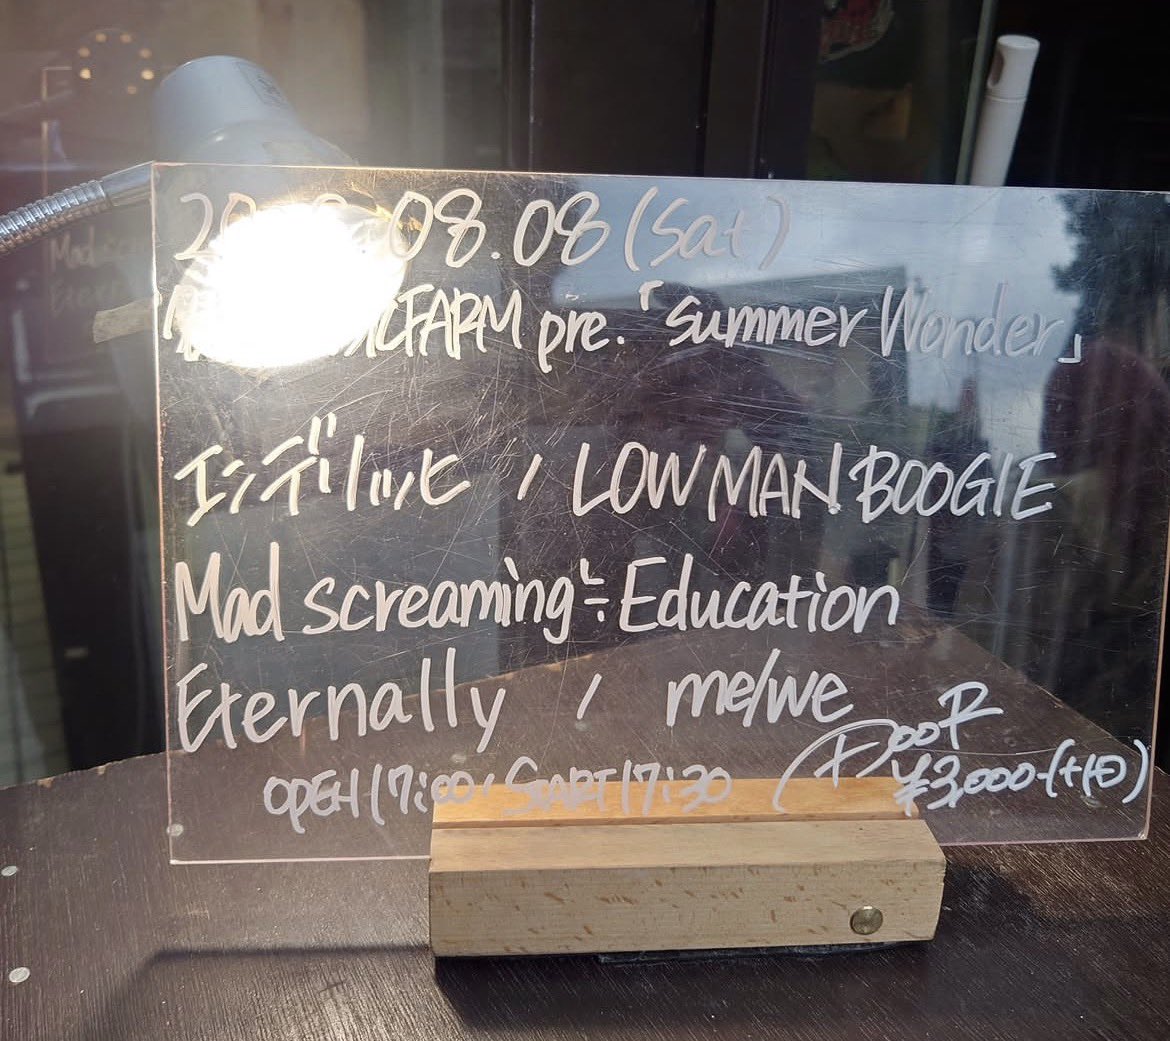 08.08 (Sat)
pre.「Summer Wonder」
エンデリッヒ / LOW MAN BOOGIE
Mad screaming÷Education
Eternally / me/we
OPEN 17:00 / START 17:30 (DooR
¥3,000-(+1D)